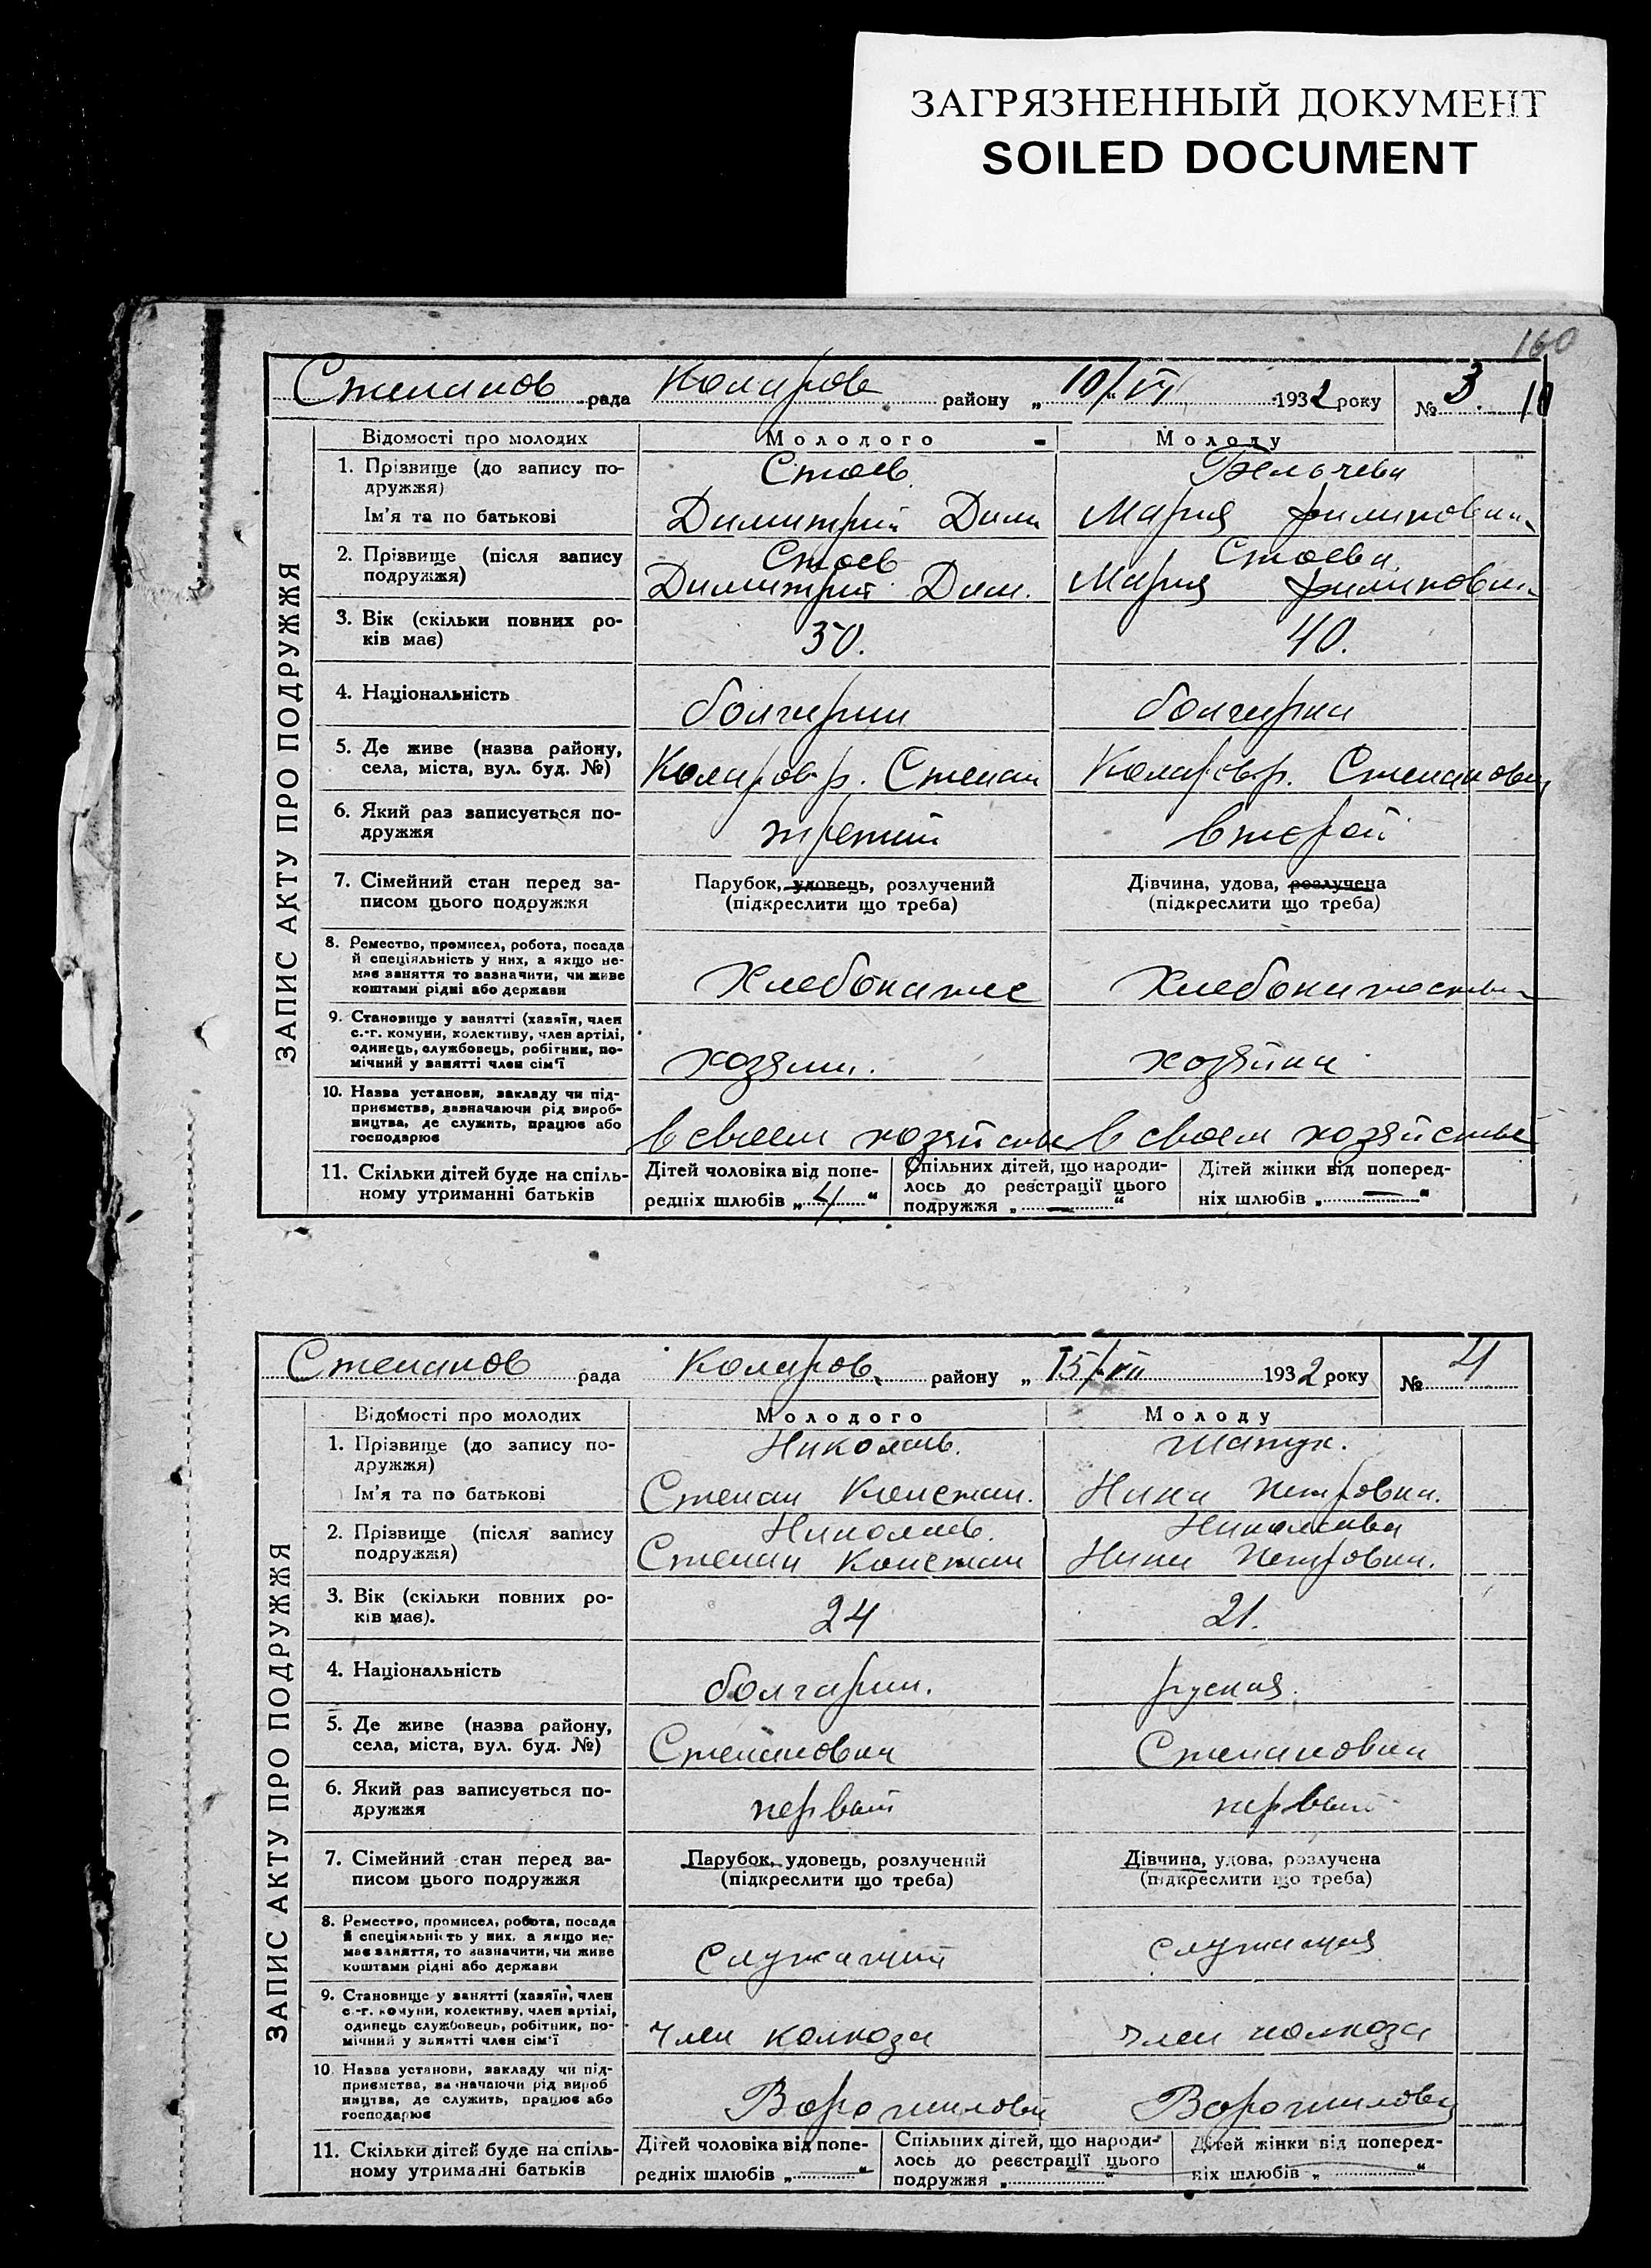 ЗАГРЯЗНЕННЫЙ ДОКУМЕНТ
SOILED DOCUMENT
160
Степанов рада Коларов району „ 10/VI 1932 року № 3
Відомості про молодих Молодого Молоду
1. Прізвище (до запису по- Стоев Бельчева
дружжя)
Ім'я та по батькові Димитрий Дими Мария Филиповна
2. Прізвище (після запису Стоев Стоева
подружжя) Димитрий Дим. Мария Филиповна
3. Вік (скільки повних ро- 50. 40.
ків має)
4. Національність болгарин болгарка
5. Де живе (назва району, Коларов р. Степан Коларов р. Степановка
села, міста, вул. буд. №)
6. Який раз записується по- третий второй
дружжя
7. Сімейний стан перед за- Парубок, удовець, розлучений Дівчина, удова, розлучена
писом цього подружжя (підкреслити що треба) (підкреслити що треба)
8. Ремество, промисел, робота, посада
й спеціяльність у них, а якщо не-
має заняття то зазначити, чи живе Хлебопаше
коштами рідні або держави
9. Становище у занятті (хазяїн, член
с.-г. комуни, колективу, член артілі,
одинець, службовець, робітник, по- хозяин. хозяйка
мічний у занятті член сім'ї
10. Назва установи, закладу чи під-
приємства, зазначаючи рід вироб-
ництва, де служить, працює або
господарює в своем хозяйстве в своем хозяйстве
11. Скільки дітей буде на спіль- Дітей чоловіка від попе- Спільних дітей, що народи- Дітей жінки від поперед-
ному утриманні батьків редніх шлюбів „ 4 “ лось до реєстрації цього ніх шлюбів „ — “
подружжя „ — “
ЗАПИС АКТУ ПРО ПОДРУЖЖЯ
Степанов рада Коларов. району „ 15/VII 1932 року № 4
Відомості про молодих Молодого Молоду
1. Прізвище (до запису по- Николаев.
дружжя)
Ім'я та по батькові Степан Констан. Нина Петровна.
2. Прізвище (після запису Николаев. Николаева
подружжя) Степан Констан Нина Петровна.
3. Вік (скільки повних ро- 24 21.
ків має).
4. Національність болгарин. руская.
5. Де живе (назва району, Степановка Степановка
села, міста, вул. буд. №)
6. Який раз записується по- первый первый
дружжя
7. Сімейний стан перед за- Парубок, удовець, розлучений Дівчина, удова, розлучена
писом цього подружжя (підкреслити що треба) (підкреслити що треба)
8. Ремество, промисел, робота, посада
й спеціяльність у них, а якщо не-
має заняття, то зазначити, чи живе служащий служащая
коштами рідні або держави
9. Становище у занятті (хазяїн, член
с.-г. комуни, колективу, член артілі,
одинець службовець, робітник, по- член колхоза член колхоза
мічний у занятті член сім'ї
10. Назва установи, закладу чи під-
приємства, зазначаючи рід вироб
ництва, де служить, працює або Ворошилова Ворошилова
господарює
11. Скільки дітей буде на спіль- Дітей чоловіка від попе- Спільних дітей, що народи- Дітей жінки від поперед-
ному утриманні батьків редніх шлюбів „ — “ лось до реєстрації цього ніх шлюбів „ “
подружжя „ “
ЗАПИС АКТУ ПРО ПОДРУЖЖЯ